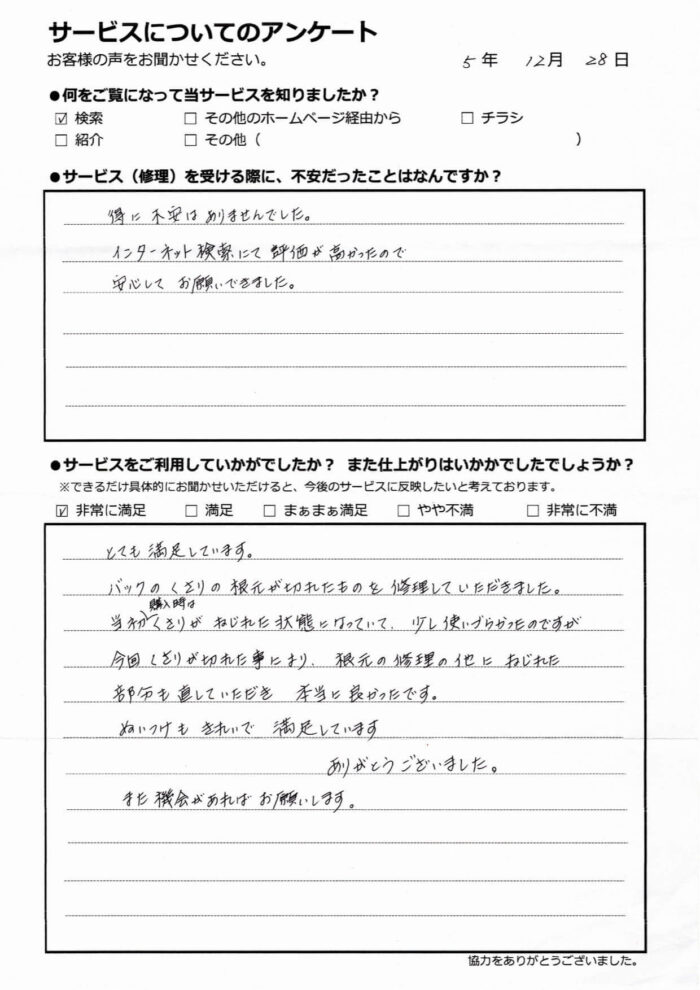 サービスについてのアンケート
お客様の声をお聞かせください。 5年 12月 28日
●何をご覧になって当サービスを知りましたか？
☑ 検索 □ その他のホームページ経由から □ チラシ
□ 紹介 □ その他（ ）
●サービス（修理）を受ける際に、不安だったことはなんですか？
得に不安はありませんでした。
インターネット検索にて評価が高かったので
安心してお願いできました。
●サービスをご利用していかがでしたか？ また仕上がりはいかかでしたでしょうか？
※できるだけ具体的にお聞かせいただけると、今後のサービスに反映したいと考えております。
☑ 非常に満足 □ 満足 □ まぁまぁ満足 □ やや不満 □ 非常に不満
とても満足しています。
バックのくさりの根元が切れたものを修理していただきました。
購入時は
当初くさりがねじれた状態になっていて、少し使いづらかったのですが
今回くさりが切れた事により、根元の修理の他にねじれた
部分も直していただき 本当に良かったです。
ぬいつけもきれいで満足しています
ありがとうございました。
また機会があればお願いします。
協力をありがとうございました。